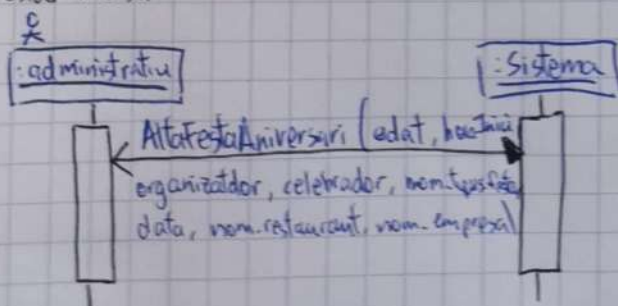 :administratiu
:Sistema
AltaFestaAniversari (edat, horaInici
organitzador, celebrador, nom_tipusfesta,
data, nom_restaurant, nom_empresa)